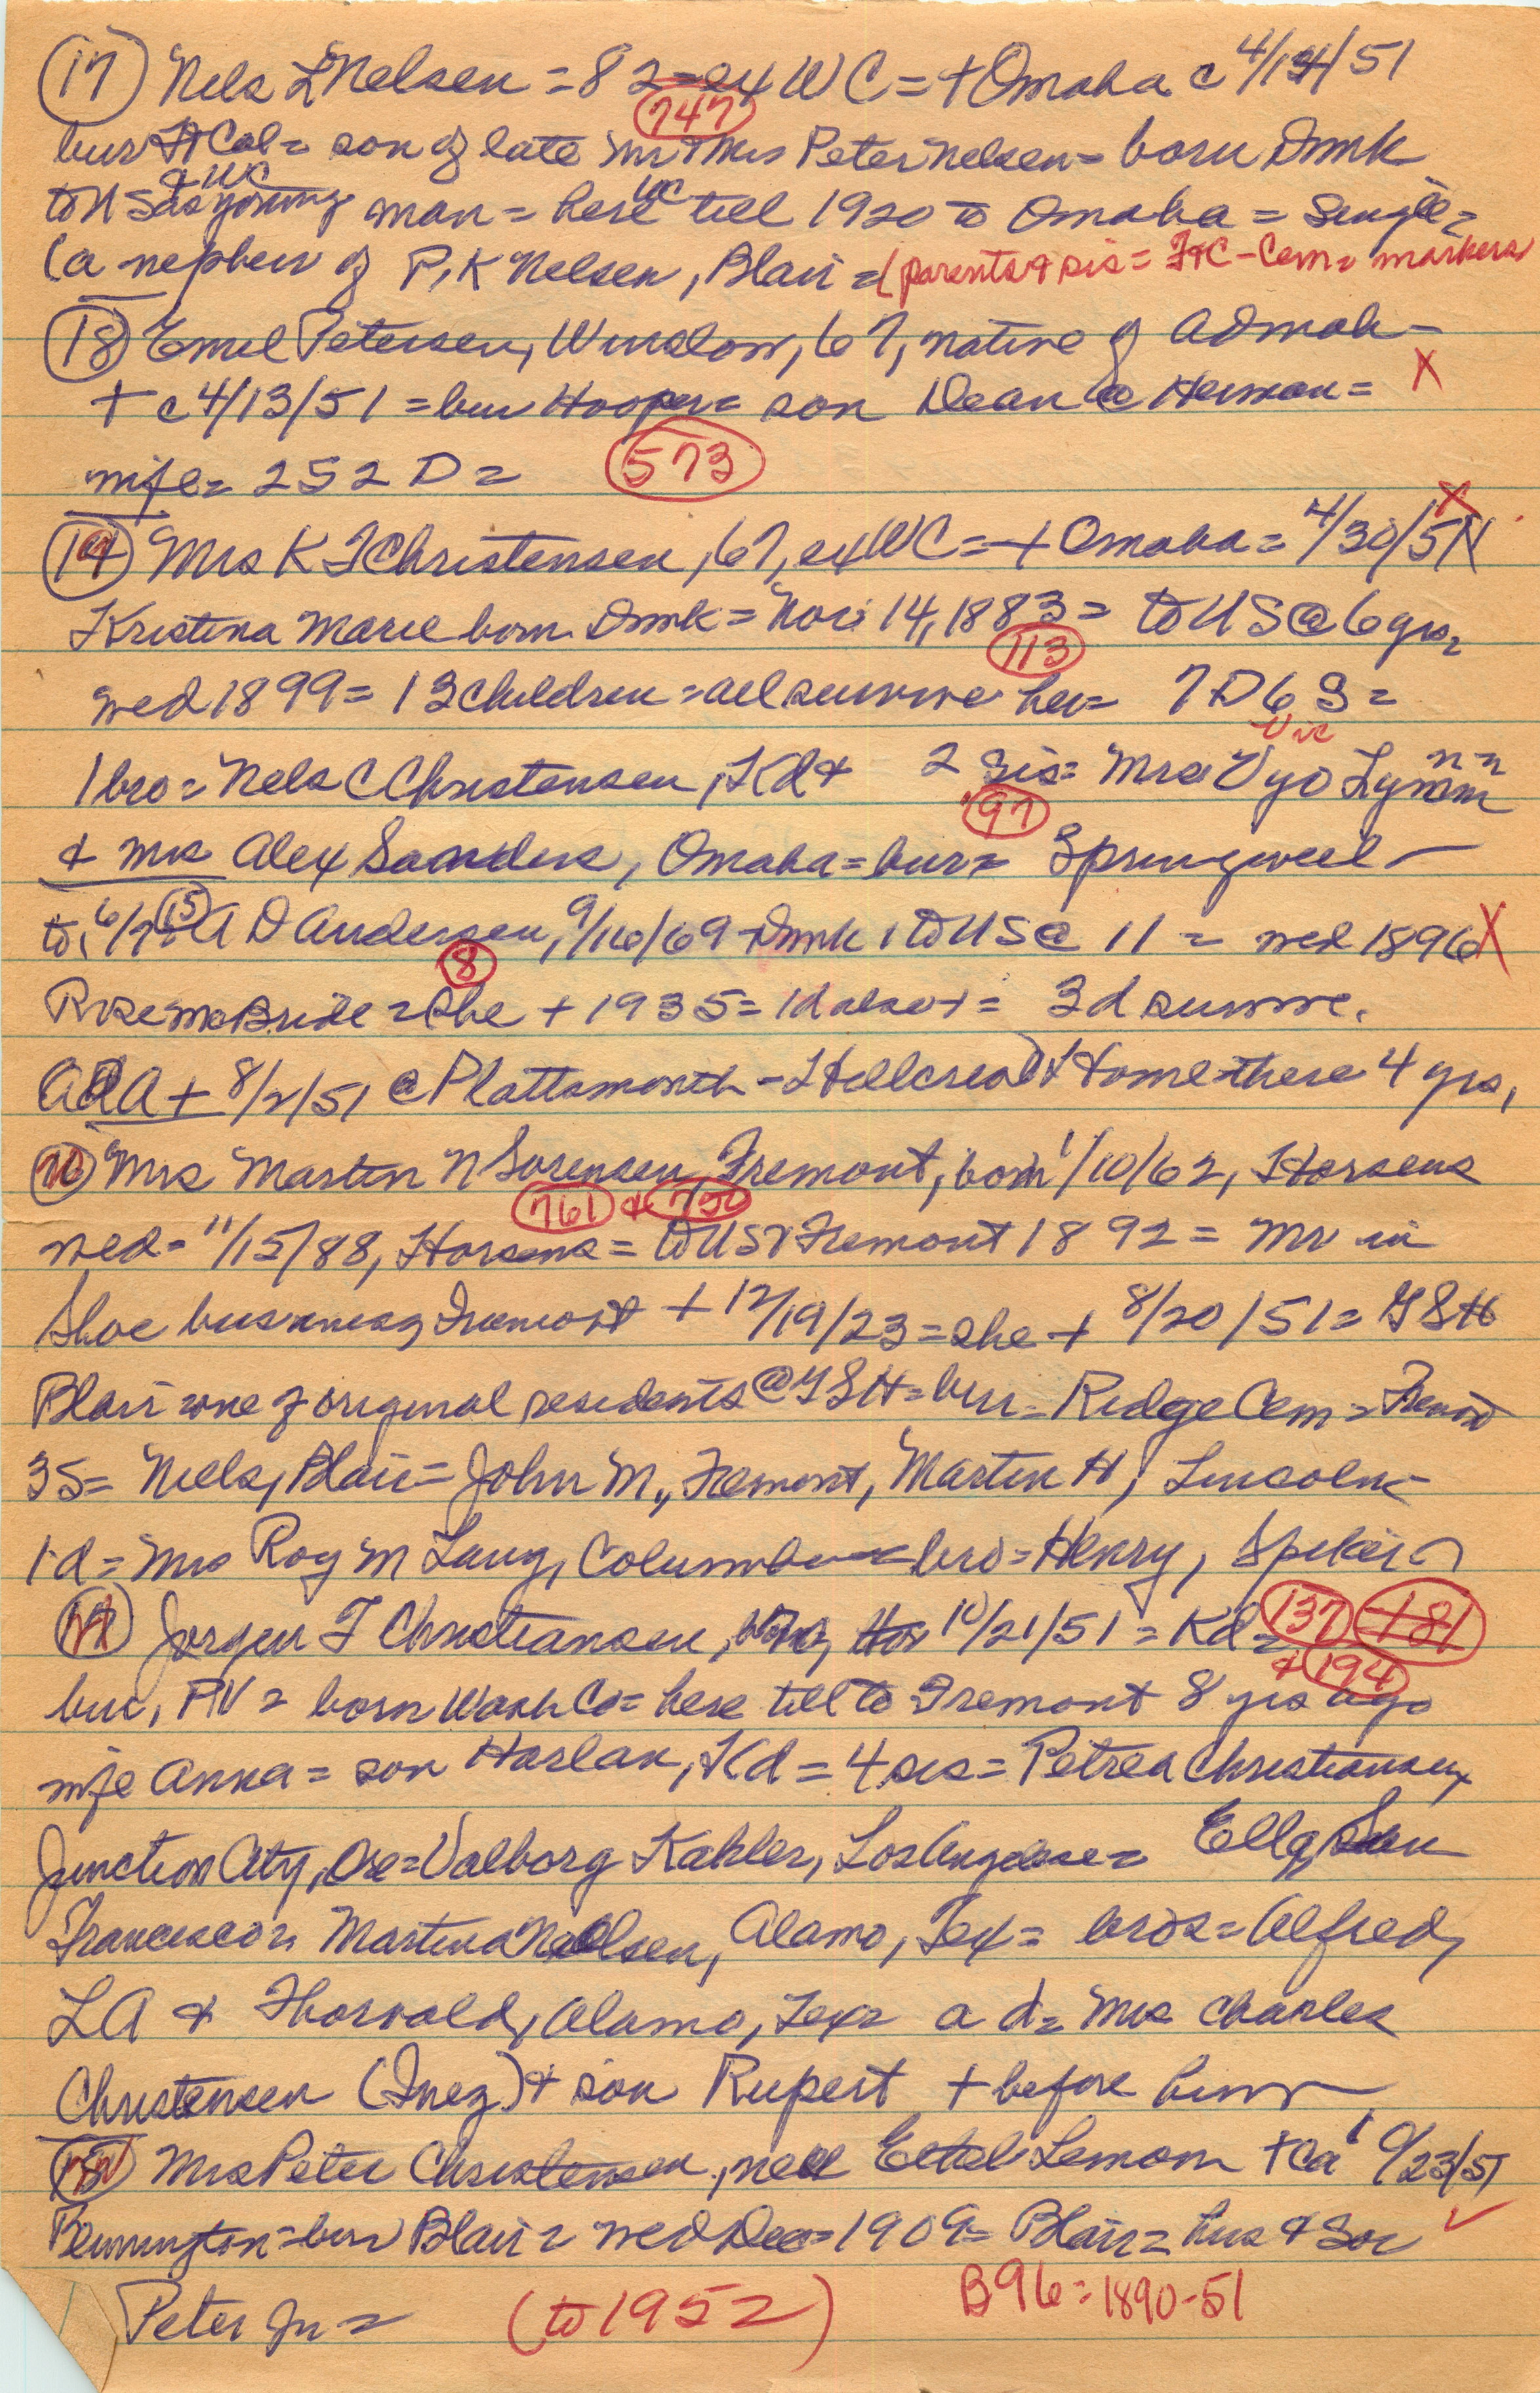 (17) Nels L Nelsen = 82 = ex WC = + Omaha c 4/14/51
(747)
bur Ft Cal = son of late Mr & Mrs Peter Nelsen = born Dmk
& WC WC
to US as young man = here till 1920 to Omaha = Single =
(a nephew of P, K Nelsen, Blair = (parents & sis = FtC - Cem = markers
(18) Emil Petersen, Winslow, 67, native of Admah -
+ c 4/13/51 = bur Hooper = son Dean @ Herman = X
wife = 2S 2D = (573)
(19) Mrs K F Christensen, 67, ex WC = + Omaha = 4/30/51 X
Kristina Marie born Dmk = Nov 14, 1883 = to US @ 6 yrs,
(113)
wed 1899 = 13 children = all survive her = 7D 6S =
Vic
1 bro = Nels C Christensen, Kd & 2 sis = Mrs Vyo Lynn
(97)
& Mrs Alex Saanders, Omaha = bur = Springwell -
to, 6/7: (15) A D Andersen, 9/16/69 Dmk, to US @ 11 = wed 1896 X
(8)
Rose McBride = she + 1935 = 1d also + = 3d survive.
ADA + 8/2/51 @ Plattsmouth - Hillcrest Home there 4 yrs,
(16) Mrs Martin N Sorensen, Fremont, born 1/10/62, Horsens
(761) &
wed - 11/15/88, Horsens = to US & Fremont 1892 = Mr in
Shoe business, Fremont + 12/19/23 = she + 8/20/51 = GSH
Blair = one of original residents @ GSH = bur = Ridge Cem = Fremont
3S = Niels, Blair = John M., Fremont, Martin H, Lincoln -
1 d = Mrs Roy M Lang, Columbus = bro = Henry, Spiker
Jorgen F Christiansen, 10/21/51 = Kd = (137) (181)
& (194)
bur, PV = born Wash Co = here till to Fremont 8 yrs ago
wife Anna = son Harlan, Kd = 4 sis = Petrea Christiansen,
Junction City, Ore = Valborg Kahler, Los Angeles = Ella, San
Francisco = Martina Nielsen, Alamo, Tex = bros = Alfred,
LA & Thorvald, Alamo, Tex = a d = Mrs Charles
Christensen (Inez) & son Rupert + before him
Mrs Peter Christensen, nee Ethel Lemon + Ca 10/23/51
Bennington = bur Blair = wed Dec = 1909 = Blair = hus & Son
Peter Jr = (to 1952) B96 = 1890-51